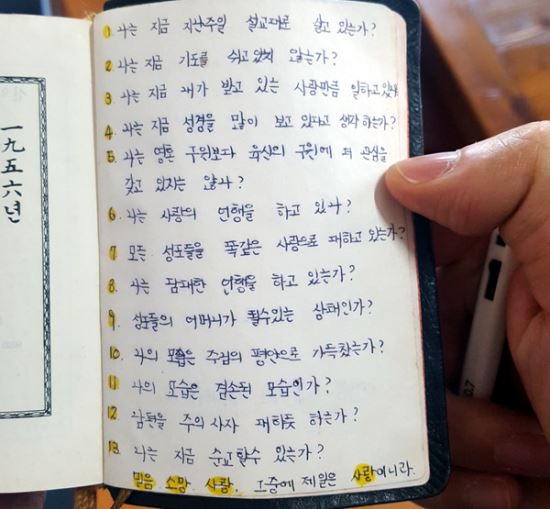 一九五六년
1. 나는 지금 지난주일 설교대로 살고 있는가?
2. 나는 지금 기도를 쉬고 있지 않는가?
3. 나는 지금 내가 받고 있는 사랑만큼 일하고 있나
4. 나는 지금 성경을 많이 보고 있다고 생각하는가?
5. 나는 영혼 구원보다 육신의 구원에 더 관심을
갖고 있지는 않나?
6. 나는 사랑의 언행을 하고 있나?
7 모든 성도들을 똑같은 사랑으로 대하고 있는가?
8. 나는 담대한 언행을 하고 있는가?
9. 성도들의 어머니가 될수있는 상태인가?
10. 나의 모습은 주님의 평안으로 가득찼는가?
11 나의 모습은 겸손된 모습인가?
12 남편을 주의 사자 대하듯 하는가?
13. 나는 지금 순교할수 있는가?
믿음 소망. 사랑. 그중에 제일은 사랑이니라.
0.7